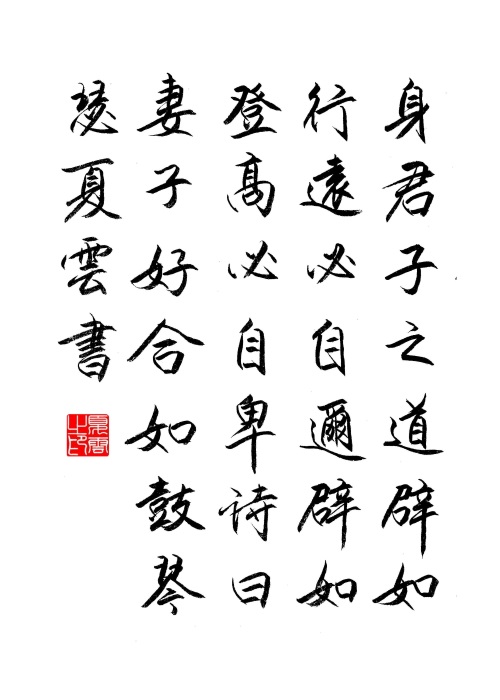 身君子之道辟如
行遠必自邇辟如
登高必自卑诗曰
妻子好合如鼓琴
瑟夏雲書
夏雲之印